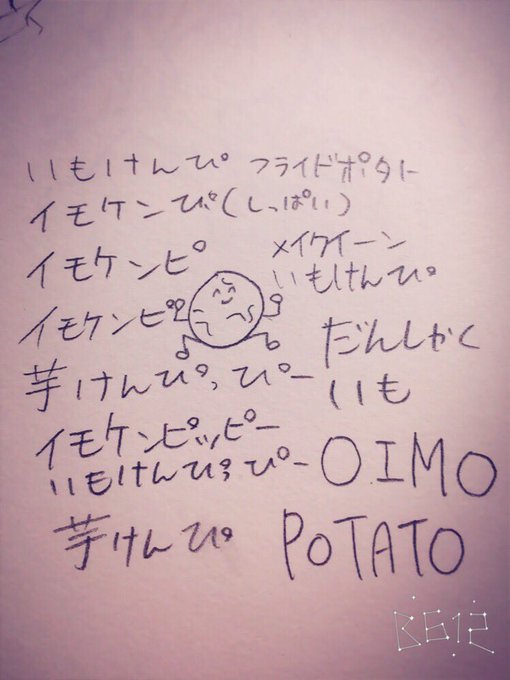 いもけんぴ フライドポタト
イモケンぴ(しっぱい)
イモケンピ
メイクイーン
いもけんぴ
イモケンピ
だんしゃく
いも
芋けんぴっぴー
イモケンピッピー
いもけんぴっぴー
OIMO
芋けんぴ
POTATO
B612